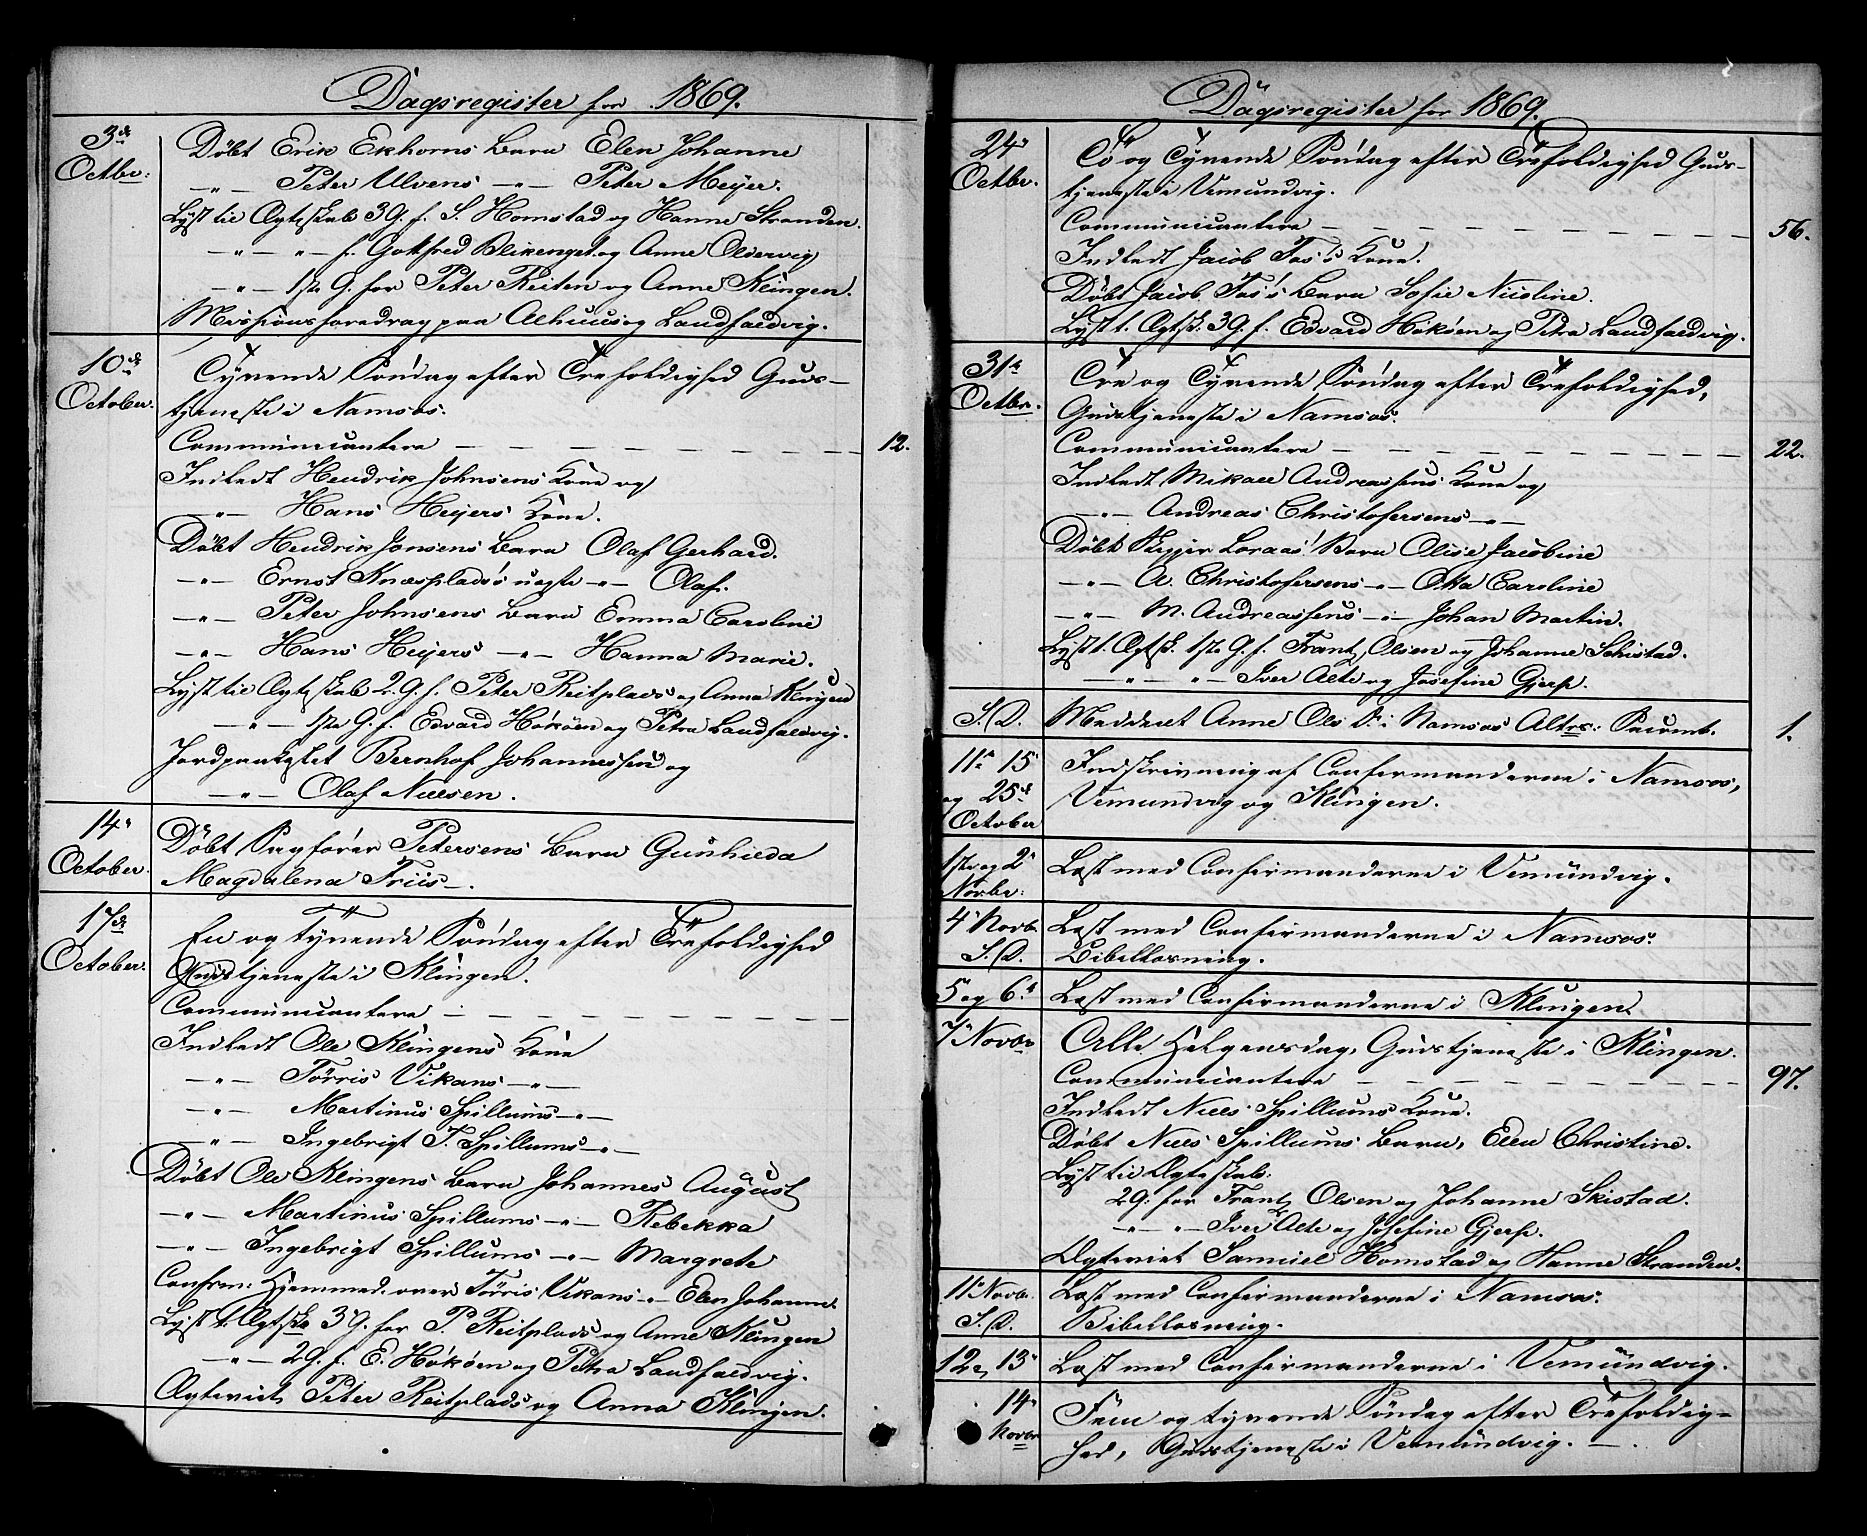 Dagsregister for 1869.
3die Octbr: Døbt Erik Ekhorns Barn Elen Johanne
—"— Peter Ulvens —"— Peter Meyer.
Lyst til Ægteskab 3 G. f. S. Homstad og Hanne Stranden.
—"— "— f. Gottfred Blikenget og Anne Oldervig
—"— 1ste G. for Peter Reiten og Anne Klingen.
Missionsforedrag paa Aelhuus og Landfaldvig.
10de October. Tyvende Søndag efter Trefoldighed Guds-
tjeneste i Namsos.
Communicantere — — — 12.
Indledt Hendrik Johnsens Kone og
—"— Hans Heyers Kone.
Døbt Hendrik Jonsens Barn Olaf Gerhard.
—"— Ernst Knæsplads's uegte —"— Olaf.
—"— Peter Johnsens Barn Emma Caroline
—"— Hans Heyers —"— Hanna Marie.
Lyst til Ægteskab 2. G. f. Peter Reitplads og Anna Klingen
—"— 1ste G. f. Edvard Hókóen og Petra Landfaldvig.
Jordpaakastet Bernhof Johannessen og
—"— Olaf Nielsen.
14de October. Døbt Sagfører Petersens Barn Gunhilda
Magdalena Friis —.
17de October. En og tyvende Søndag efter Trefoldighed
Gudstjeneste i Klingen.
Communicantere — — —
Indledt Ole Klingens Kone
—"— Tørris Vikans —"—
—"— Martinus Spillums —"—
—"— Ingebrigt T. Spillums —"—
Døbt Ole Klingens Barn Johannes August
—"— Martinus Spillums —"— Rebekka
—"— Ingebrigt Spillums —"— Margrete
Confrm: Hjemmed. over Tørris Vikans —"— Elen Johanne.
Lyst t. Ægtsk. 3 G. for P. Reitplads og Anne Klingen
—"— 2 G. f. E. Hókóen og Petra Landfaldvig.
Ægteviet Peter Reitplads og Anna Klingen.
Dagsregister for 1869.
24de Octbr. To og Tyvende Søndag efter Trefoldighed Guds-
tjeneste i Vemundvig.
Communicantere — — — 56.
Indledt Jacob Fos's Kone.
Døbt Jacob Fos's Barn Sofie Nicoline.
Lyst t. Ægtsk. 3 G. f. Edvard Hókóen og Petra Landfaldvig.
31te Octbr. Tre og Tyvende Søndag efter Trefoldighed,
Gudstjeneste i Namsos.
Communicantere — — — 22.
Indledt Mikael Andreassens Kone og
—"— Andreas Christofersens —"—
Døbt Loraas' Barn Olise Jacobine
—"— A. Christofersens —"— Otta Caroline
—"— M. Andreassens —"— Johan Martin.
Lyst t. Ægtsk. 1ste G. f. Frantz Olsen og Johanne Schistad.
—"— "— Iver Alte og Josefine Gjerp.
S./D. Meddelet Anne Ols D. i Namsos Altrs: Sacrmt. 1.
11te 15de og 25de October Indskrivning af Confirmanderne i Namsos,
Vemundvig og Klingen.
1ste og 2de Novbr: Læst med Confirmanderne i Vemundvig.
4de Novbr. Læst med Confirmanderne i Namsos.
S./D. Bibellæsning.
5te og 6te Læst med Confirmanderne i Klingen.
7de Novbr Alle Helgensdag, Gudstjeneste i Klingen.
Communicantere — — — 97.
Indledt Niels Spillums Kone.
Døbt Niels Spillums Barn, Elen Christine.
Lyst til Ægteskab:
2 G. for Frantz Olsen og Johanne Skistad.
—"— "— Iver Alte og Josefine Gjerp.
Ægteviet Samuel Homstad og Hanne Stranden.
11te Novbr. Læst med Confirmanderne i Namsos.
S./D. Bibellæsning.
12te, 13de Læst med Confirmanderne i Vemundvig.
14de Novbr Fem og tyvende Søndag efter Trefoldig-
hed, Gudstjeneste i Vemundvig. —.